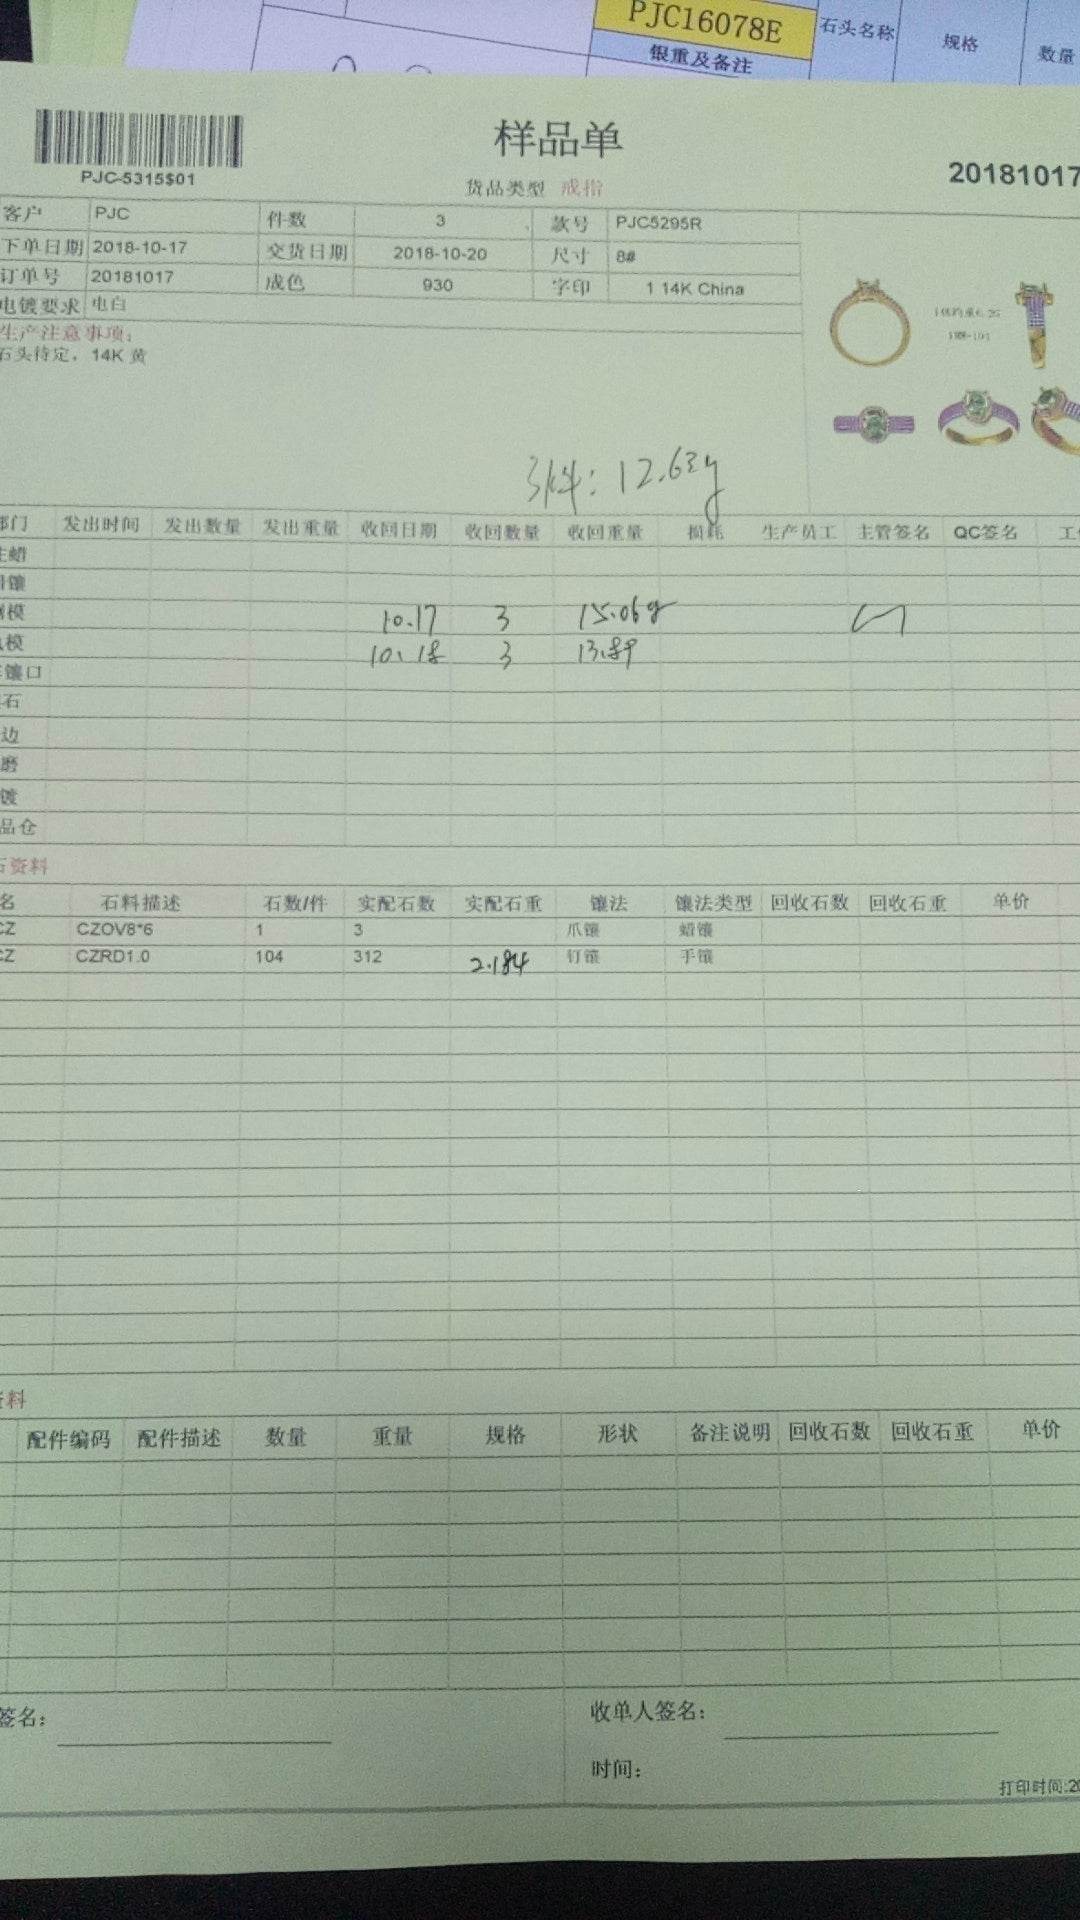 PJC16078E
银重及备注
石头名称
规格
数量
样品单
PJC-5315$01
货品类型 戒指
20181017
客户 PJC 件数 3 款号 PJC5295R
下单日期 2018-10-17 交货日期 2018-10-20 尺寸 8#
订单号 20181017 成色 930 字印 1 14K China
电镀要求 电白
生产注意事项:
石头待定，14K 黄
3件: 12.63g
部门 发出时间 发出数量 发出重量 收回日期 收回数量 收回重量 损耗 生产员工 主管签名 QC签名
蜡
镶
模 10.17 3 15.06g
模 10.18 3 13.89
镶口
石
边
磨
镀
品仓
石资料
名 石料描述 石数/件 实配石数 实配石重 镶法 镶法类型 回收石数 回收石重 单价
CZ CZOV8*6 1 3 爪镶 蜡镶
CZ CZRD1.0 104 312 2.184 钉镶 手镶
料
配件编码 配件描述 数量 重量 规格 形状 备注说明 回收石数 回收石重 单价
签名:
收单人签名:
时间:
打印时间:20